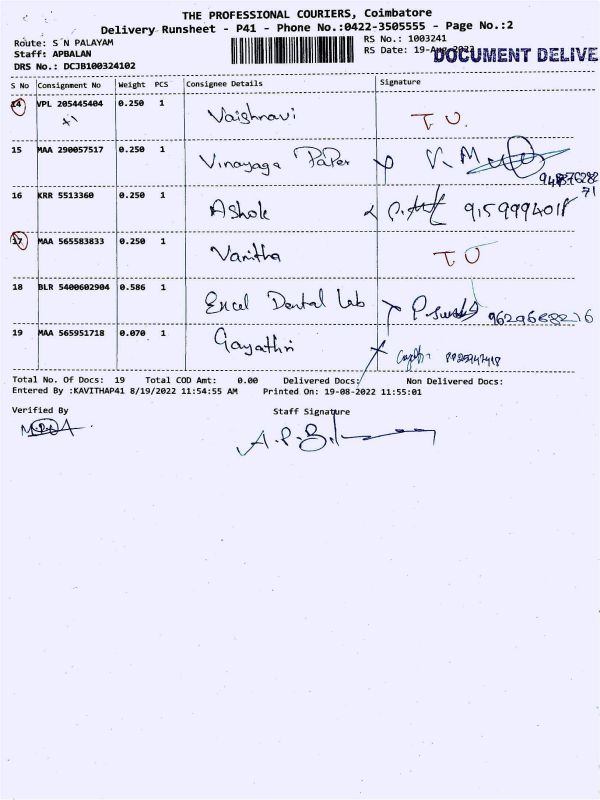 THE PROFESSIONAL COURIERS, Coimbatore
Delivery Runsheet - P41 - Phone No.:0422-3505555 - Page No.:2
Route: S N PALAYAM
RS No.: 1003241
Staff: APBALAN
RS Date: 19-Aug-2022
DOCUMENT DELIVE
DRS No.: DCJB100324102
S No Consignment No Weight PCS Consignee Details Signature
14 VPL 205445404 0.250 1 Vaishnavi T.U.
15 MAA 290057517 0.250 1 Vinayaga Paper
16 KRR 5513360 0.250 1 Ashok 9159994018
17 MAA 565583833 0.250 1 Vanitha T U
18 BLR 5400602904 0.586 1 Excel Dental Lab 9629668216
19 MAA 565951718 0.070 1 Gayathri
Total No. Of Docs: 19 Total COD Amt: 0.00 Delivered Docs: Non Delivered Docs:
Entered By :KAVITHAP41 8/19/2022 11:54:55 AM Printed On: 19-08-2022 11:55:01
Verified By Staff Signature